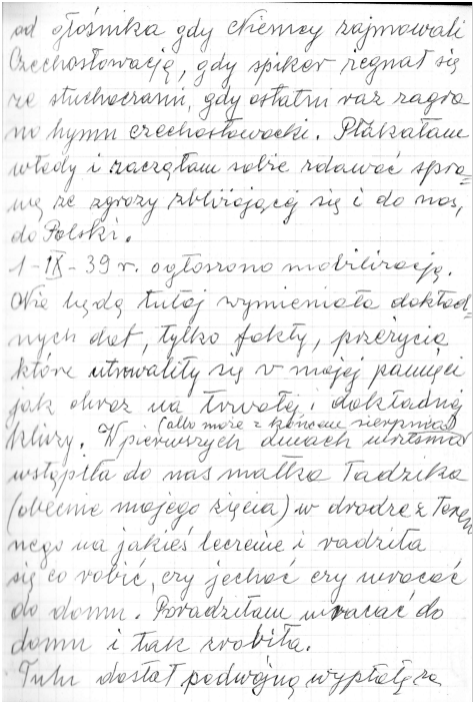 od głośnika gdy Niemcy zajmowali
Czechosłowację, gdy spiker żegnał się
ze słuchaczami, gdy ostatni raz zagra
no hymn czechosłowacki. Płakałam
wtedy i zaczęłam sobie zdawać spra=
wę ze zgrozy zbliżającej się i do nas,
do Polski.
1-IX-39 r. ogłoszono mobilizację.
Nie będę tutaj wymieniała dokład=
nych dat, tylko fakty, przeżycia
które utrwaliły się w mojej pamięci
jak obraz na trwałej i dokładnej
(albo może z końcem sierpnia)
kliszy. W pierwszych dniach września
wstąpiła do nas matka Tadzika
(obecnie mojego zięcia) w drodze z
nego na jakieś leczenie i radziła
się co robić, czy jechać czy wracać
do domu. Poradziłam wracać do
domu i tak zrobiła.
dostał podwójną wypłatę za